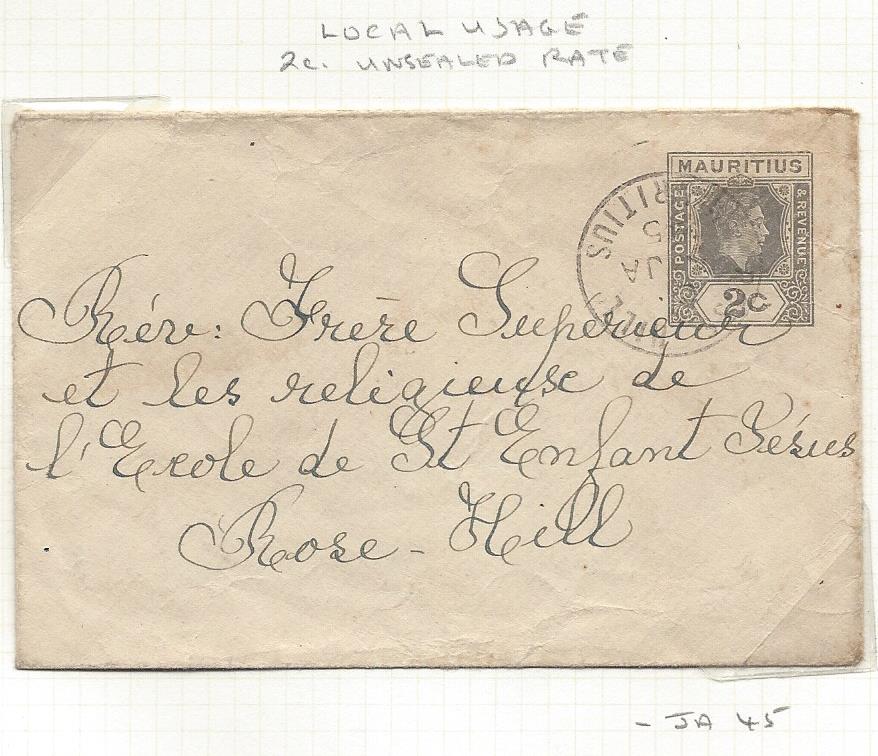 LOCAL USAGE
2c. UNSEALED RATE
MAURITIUS
POSTAGE
& REVENUE
2c
RITIUS
5
JA
Rév: Frère Superieur
et les religieuse de
l'Ecole de St Enfant Jésus
Rose-Hill
- JA 45